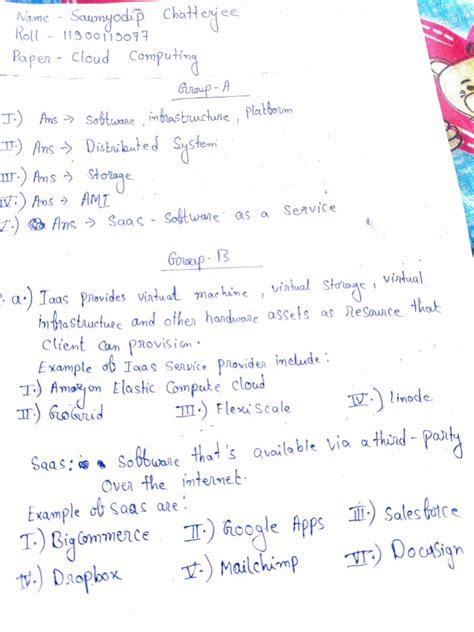 Name - Saumyodip Chatterjee
Roll - 11900119077
Paper - Cloud Computing
Group-A
I.) Ans → Software, infrastructure, Platform
II.) Ans → Distributed System
III.) Ans → Storage
IV.) Ans → AMI
V.) Ans → Saas - Software as a Service
Group-B
a.) Iaas provides virtual machine, virtual storage, virtual
infrastructure and other hardware assets as resource that
Client can provision.
Example of Iaas Service provider include:
I.) Amazon Elastic Compute Cloud
II.) GoGrid III.) Flexiscale IV.) linode
Saas: Software that's available via a third-party
over the internet.
Example of Saas are:
I.) BigCommerce II.) Google Apps III.) Salesforce
IV.) Dropbox V.) Mailchimp VI.) Docusign